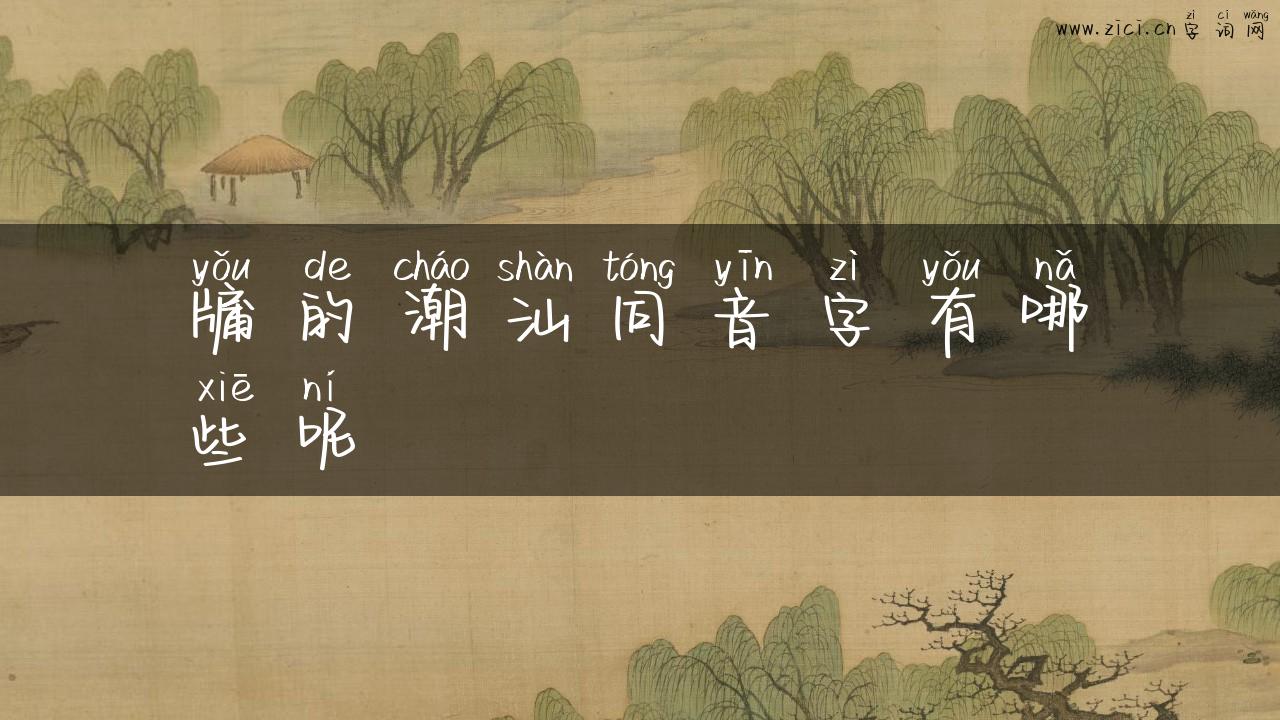 zì cí wǎng
www.zici.cn 字词网
yǒu de cháo shàn tóng yīn zì yǒu nǎ
牖的潮汕同音字有哪
xiē ní
些呢